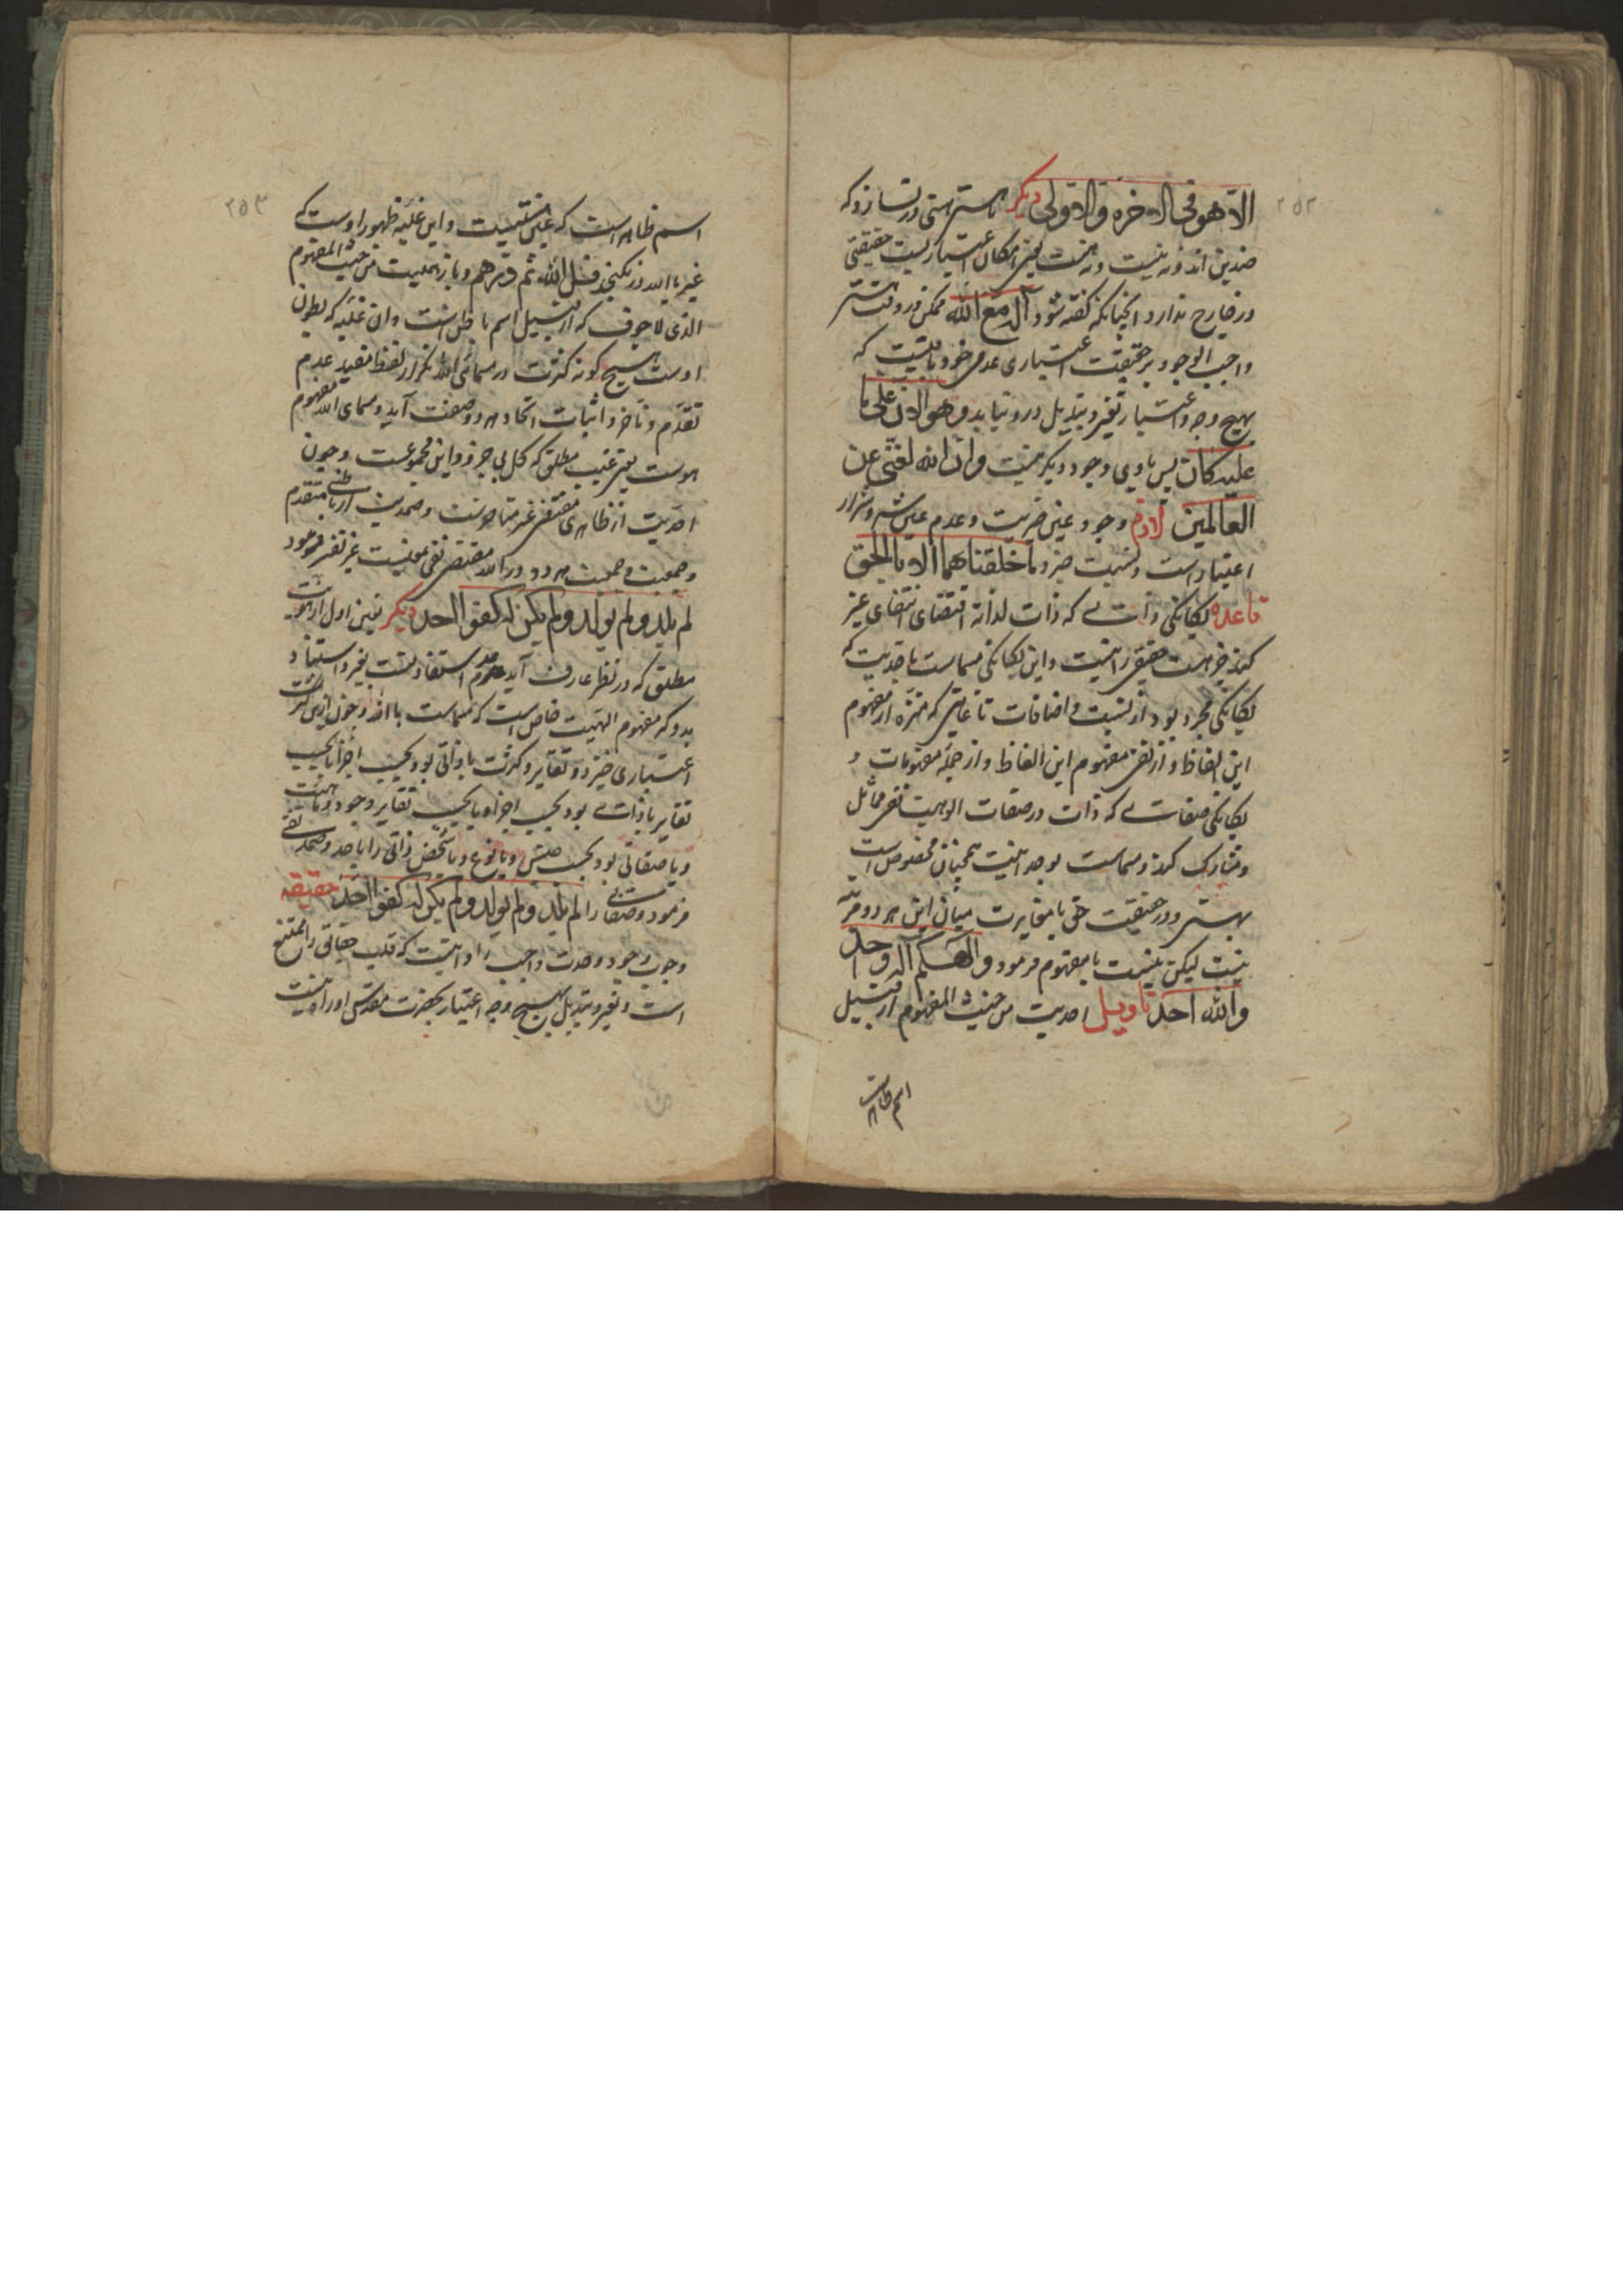 ۲۵۲
الا هو فی الاخره والاولی دیکر
ضدین اند نه نیست و نه هست یعنی امکان اعتباریست حقیقتی
در خارج ندارد انچنانکه کفته شود اله مع الله ممکن در وقت
واجب الوجود بر حقیقت اعتباری عدمی خود باقیست که
بهیچ وجه و اعتبار تغیر و تبدیل درو نیابد و هو الان علی ما
علیه کان پس با وی وجود دیکر نیست وان الله لغنی عن
العالمین لازم وجود عین خیریت و عدم عین شر و شرار
اعتبار است و نسبت خیر و ما خلقناهما الا بالحق
قاعده یکانکی ذاتی که ذات لذاته اقتضای انتفای غیر
کند خود هست حقیقی راست و این یکانکی مسماست باحدیت که
یکانکی مجرد بود از نسبت و اضافات تا غایتی که منزه از مفهوم
این الفاظ و از نفی مفهوم این الفاظ و از جمله مفهومات و
یکانکی صفاتی که ذات در صفات الوهیت نفی مماثل
و مشارک کند و مسماست بوحدانیت همچنان مخصوص است
بهستی و در حقیقت حق با مغایرت میان این هر دو مرتبه
نیست لیکن بنسبت با مفهوم فرمود و الهکم اله واحد
والله احد تاویل احدیت من حیث المفهوم از قبیل
اسم ظاهرست
۲۵۳
اسم ظاهر است که غیبش نیست و این غلبه ظهور اوست که
غیر با الله در نکنجد قل الله ثم ذرهم و باز صمدیت من حیث المفهوم
الذی لا جوف که از قبیل اسم باطن است و ان غلبه که بطون
اوست هیچ کونه کثرت در مسمای الله تکرار لفظا مفید عدم
تقدم و تاخر و اثبات اتحاد هر دو صفت آید و مسمای الله مفهوم
هوست یعنی غیب مطلق که کل بی جز و این مجموعست و چون
احدیت از ظاهری مقتضی غیر متناهیست و صمدیت از باطنی متقدم
و جمعیت هر دو در الله مقتضی نفی معیت غیر نفی فرمود
لم یلد و لم یولد و لم یکن له کفوا احد دیکر تعین اول از هویت
مطلق که در نظر عارف آید عدم استفادتست بغیر و استناد
بدو که مفهوم الهیت خاص است که مسماست باالله و چون از کثرت
اعتباری خیزد و تغایر و کثرت یا ذاتی بود بحسب اجزا یا بحسب
تغایر یا ذاتی بود بحسب اجزا و یا بحسب تغایر وجود و ماهیت
و یا صفاتی بود بحسب جنس و یا نوع و یا شخص ذاتی را باحد و صمد نفی
فرمود و صفاتی را لم یلد و لم یولد و لم یکن له کفوا احد حقیقه
وجوب وجود وحدت واجب را دانیست که قلب حقایق را ممتنع
است و تغیر و تبدیل بهیچ وجه اعتبار بحضرت مقدس او راه نیست